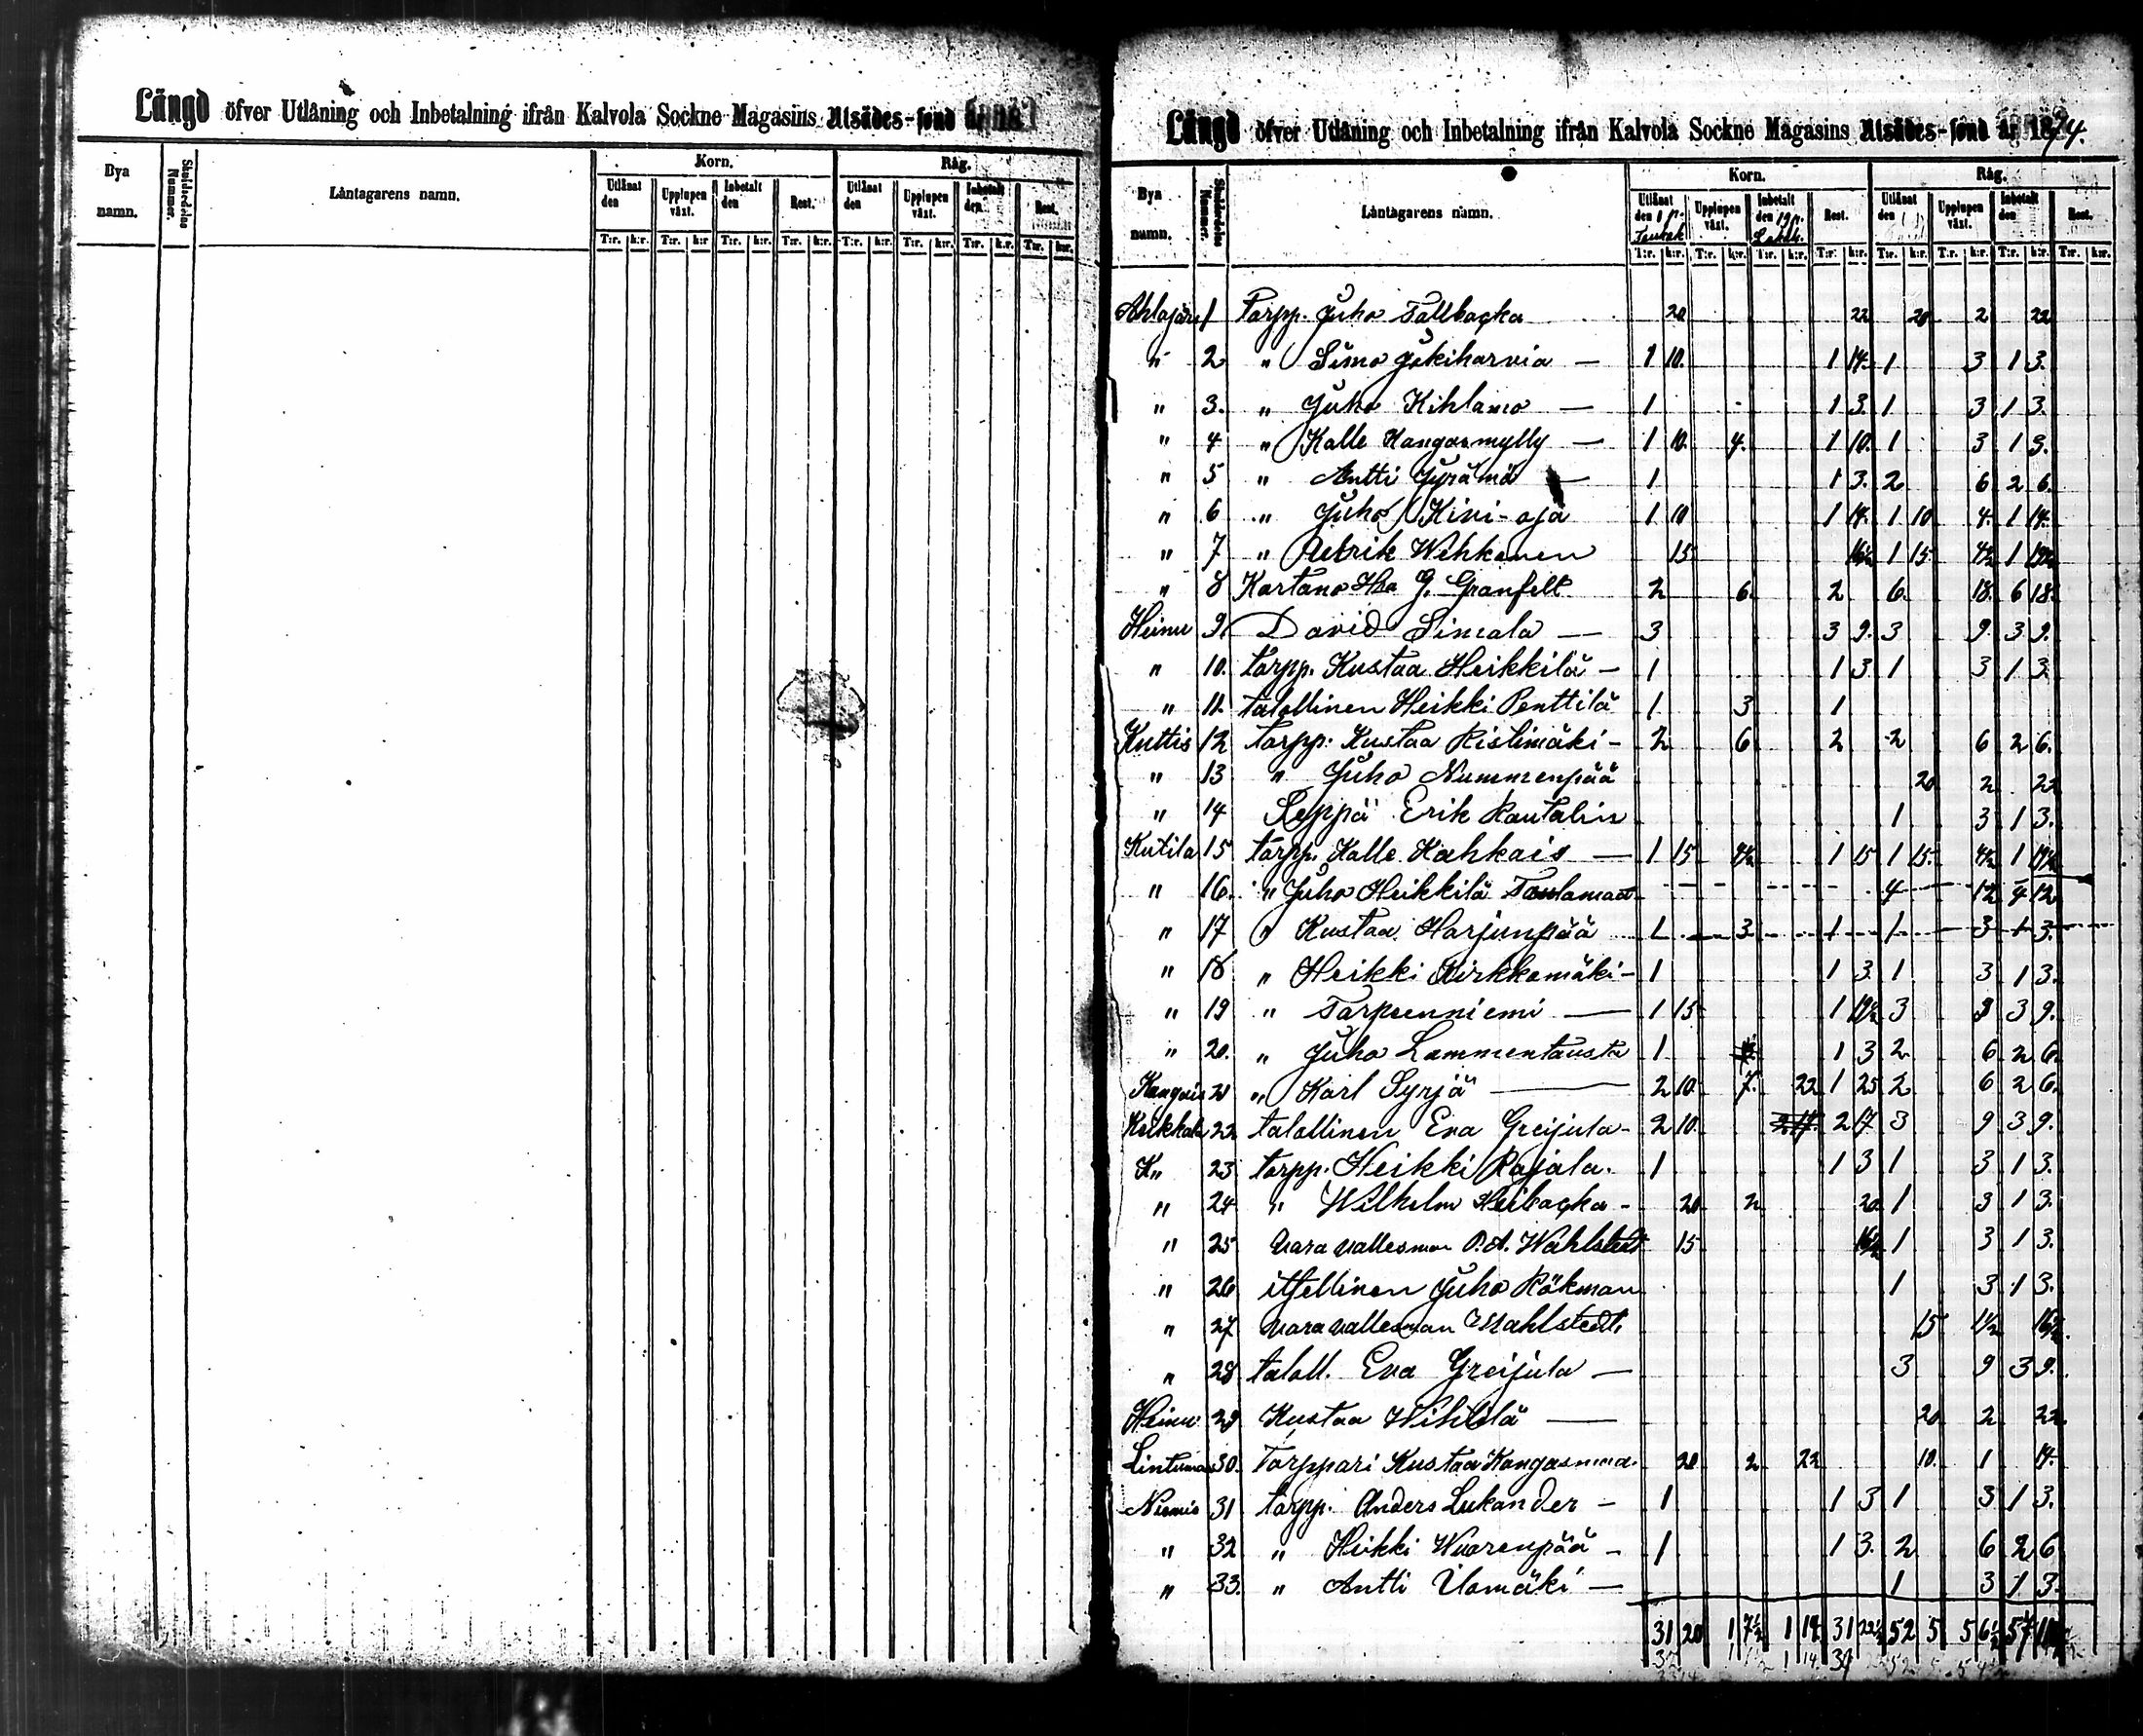 Längd öfver Utlåning och Inbetalning ifrån Kalvola Sockne Magasins Utsädes-fond år 18
Bya namn. Skuldsedelns Nummer. Låntagarens namn. Korn. Råg.
Utlånat den Upplupen växt. Inbetalt den Rest. Utlånat den Upplupen växt. Inbetalt den Rest.
T:r. k:r. T:r. k:r. T:r. k:r. T:r. k:r. T:r. k:r. T:r. k:r. T:r. k:r. T:r. k:r.
Längd öfver Utlåning och Inbetalning ifrån Kalvola Sockne Magasins Utsädes-fond år 1894.
Bya namn. Skuldsedelns Nummer. Låntagarens namn. Korn. Råg.
Utlånat den 1 p. Toukok Upplupen växt. Inbetalt den 19 p. Rest. Utlånat den Upplupen växt. Inbetalt den Rest.
T:r. k:r. T:r. k:r. T:r. k:r. T:r. k:r. T:r. k:r. T:r. k:r. T:r. k:r. T:r. k:r.
Ahlajärvi 1 Torpp. Juho Tallbacka 20 22 20 2 22
" 2 " Simo Jokiharvia — 1 10. 1 14. 1 3 1 3.
" 3. " Juho Kihlamo — 1 1 3. 1 3 1 3.
" 4 " Kalle Kangasmylly — 1 10. 4. 1 10. 1 3 1 3.
" 5 " Antti Jyrämö — 1 1 3. 2 6 2 6.
" 6 " Juho Kivi-oja 1 10 1 14. 1 10 4. 1 14.
" 7 " Wihkonen 15 16½ 1 15 4½ 1 19½
" 8 Kartano Hra G. Granfelt 2 6. 2 6. 18. 6 18.
Heinu 9. David Simola — 3 3 9. 3 9. 3 9.
" 10. torpp. Kustaa Heikkilä — 1 1 3 1 3 1 3
" 11. talollinen Heikki Penttilä 1 3 1
Kuttis 12 torpp. Kustaa Ristimäki — 2 6 2 2 6 2 6.
" 13 " Juho Nummenpää 20 2 22
" 14 Seppä Erik Rautalin 1 3 1 3.
Kutila 15 torpp. Kalle Kahkais — 1 15 4½ 1 15 1 15. 4½ 1 19½
" 16. " Juho Heikkilä 4 12 4 12
" 17 " Kustaa Harjunpää 1 3 1 1 3 1 3.
" 18 " Heikki Kirkkomäki — 1 1 3. 1 3 1 3.
" 19 " Torpunniemi — 1 15 1 19½ 3 9 3 9.
" 20. " Juho Lammentausta 1 1 3 2 6 2 6.
Kangais 21 " Karl Syrjä — 2 10. 7. 22 1 25 2 6 2 6.
Keikkala 22 talollinen Eva Greijula — 2 10. 2 17. 2 17 3 9 3 9.
K" 23 torpp. Heikki Rajala. 1 1 3 1 3 1 3.
" 24 " Wilhelm Heibacka — 20 2 20. 1 3 1 3.
" 25 Vara vallesman P. A. Wahlstedt 15 16½ 1 3 1 3.
" 26 itsellinen Juho Rökman 1 3 1 3.
" 27 Vara vallesman Wahlstedt. 15 1½ 16½
" 28 taloll. Eva Greijula — 3 9 3 9.
Heinu 29 Kustaa Wihtilä — 20 2 22
30. Torppari Kustaa Kangasmaa. 20 2 22 10. 1 14.
Niemis 31 torpp. Anders Lukander — 1 1 3 1 3 1 3.
" 32 " Heikki Wuorenpää — 1 1 3. 2 6 2 6
" 33. " Antti Ulomäki — 1 3 1 3.
31 20 1 7½ 1 14 31 22½ 52 5 5 6½ 57